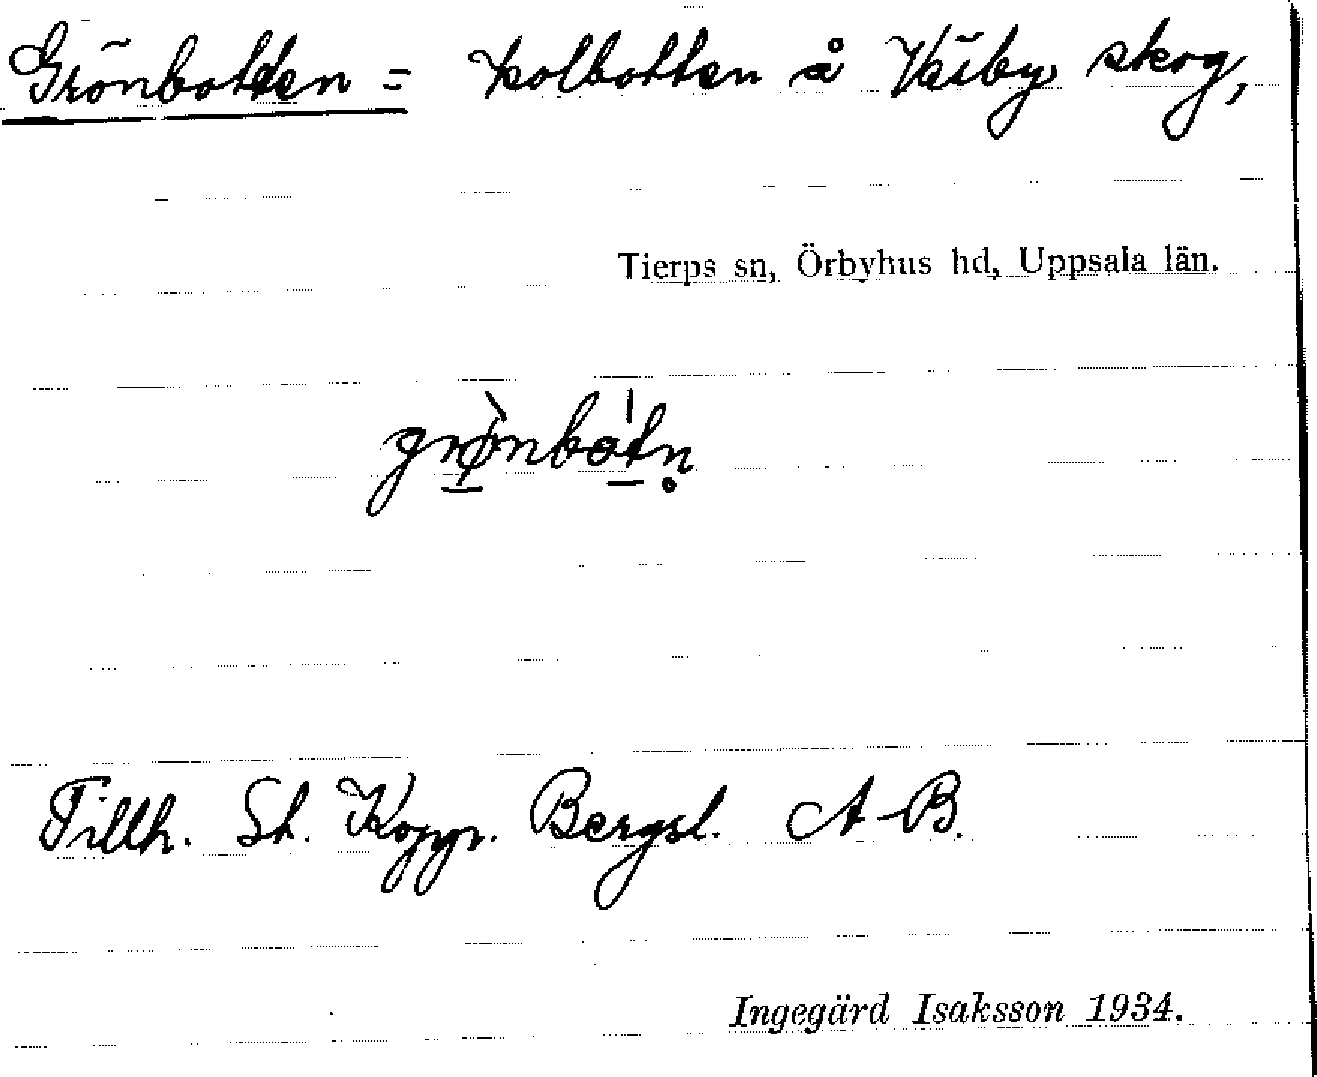 Grönbotten = kolbotten å Väiby skog,
Tierps sn, Örbyhus hd, Uppsala län.
grø̀nbo̍tn̥
Tillh. St. Koppr. Bergsl. A-B.
Ingegärd Isaksson 1934.